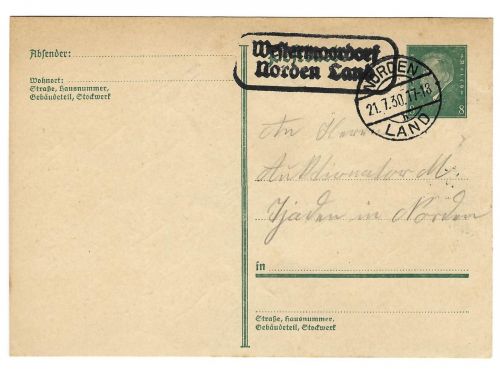 Absender:
Wohnort:
Straße, Hausnummer,
Gebäudeteil, Stockwerk
Westermoordorf
Norden Land
NORDEN
21.7.30.17-18
LAND
8
An Herrn
Auktionator M.
Tjaden in Norden
in
Straße, Hausnummer,
Gebäudeteil, Stockwerk